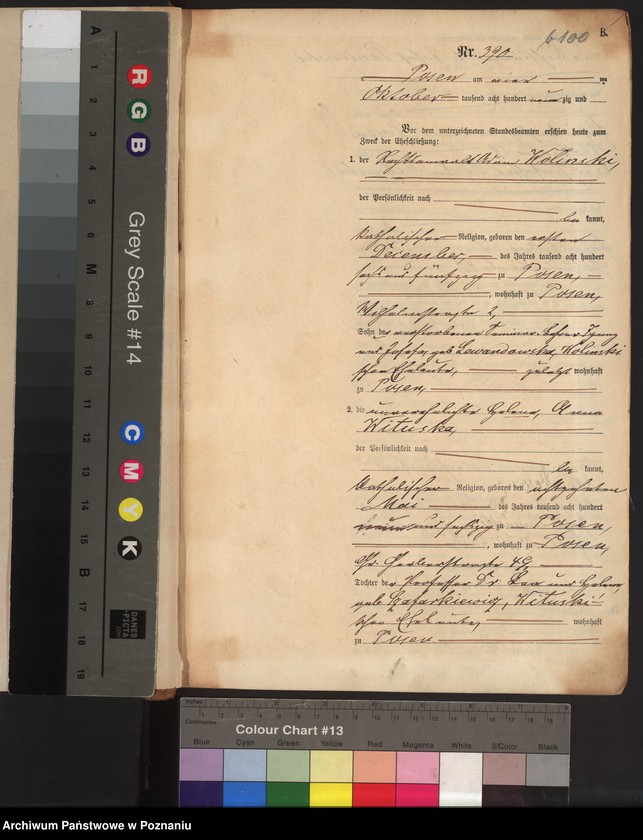 6100 B.
Nr. 390
Posen am vier ten
Oktober tausend acht hundert neunzig und
Vor dem unterzeichneten Standesbeamten erschien heute zum
Zweck der Eheschließung:
1. der Rechtsanwalt Adam Wolinski,
der Persönlichkeit nach
be kannt,
katholischer Religion, geboren den ersten
Dezember, des Jahres tausend acht hundert
sechs und fünfzig zu Posen,
, wohnhaft zu Posen,
Wilhelmstraße 2,
Sohn des verstorbenen Seminar-Lehrer Ignaz
und Josefa, geb. Lewandowska, Wolinski
schen Eheleute, zuletzt wohnhaft
zu Posen,
2. die unverehelichte Helena, Anna
Wituska,
der Persönlichkeit nach
be kannt,
katholischer Religion, geboren den achtzehnten
Mai des Jahres tausend acht hundert
und sechzig zu Posen,
, wohnhaft zu Posen,
Gr. Gerberstraße
Tochter der Professor Dr. Leo und Helena,
geb. Szafarkiewicz, Wituski'
schen Eheleute, wohnhaft
zu Posen
A 1 2 3 4 5 6 M 8 9 10 11 12 13 14 15 B 17 18 19
R
G
B
Grey Scale #14
C
M
Y
K
DANES
PICTA
.COM
Inches 1 2 3 4 5 6 7 8
Centimetres 1 2 3 4 5 6 7 8 9 10 11 12 13 14 15 16 17 18 19
Colour Chart #13
Blue Cyan Green Yellow Red Magenta White 3/Color Black
Archiwum Państwowe w Poznaniu